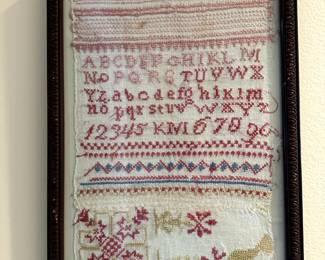 ABCDEFGHIKLM
NOPQRSTUVWX
YZabcdefghiklm
nopqrstuvwxyz
12345KM678